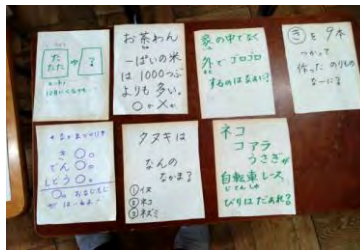 たた
たた
⇒
?
お茶わん
一ぱいの米
は1000つぶ
よりも多い。
○か×か。
家の中でなく
外でゴロゴロ
するのはなぁに?
きを9本
つかって
作ったのりもの
なーに?
き○○。
でん○○。
しどう○○。
タヌキは
なんの
なかま?
①イヌ
②ネコ
③ネズミ
ネコ
コアラ
うさぎが
自転車レース
じてんしゃ
びりはだぁれ?